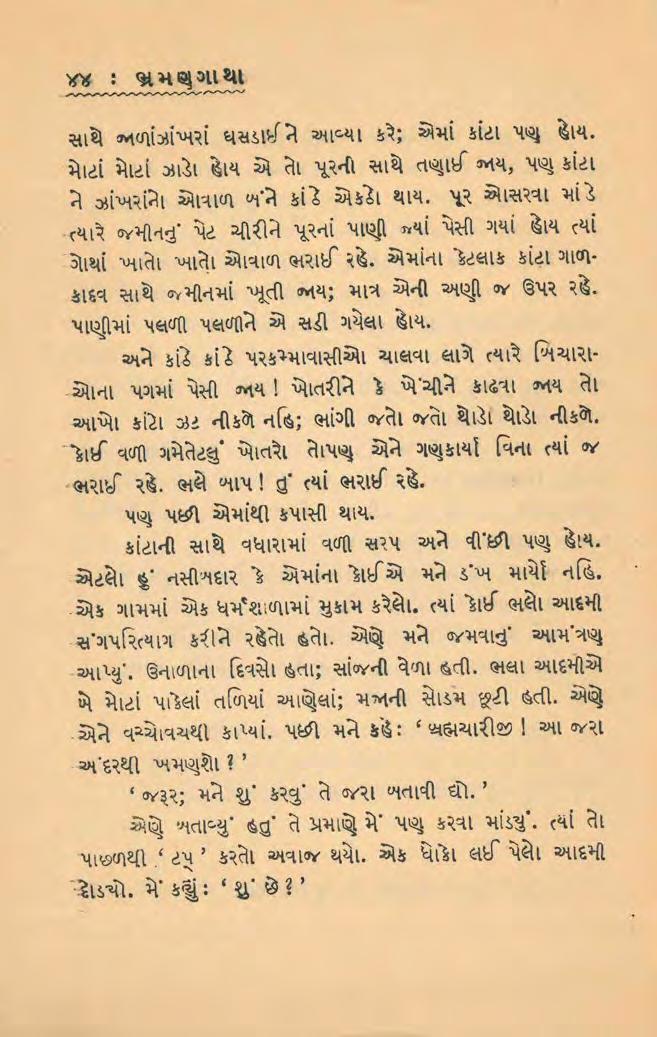 ૪૪ : ભ્રમણગાથા
સાથે જાળાંઝાંખરાં ઘસડાઈને આવ્યા કરે; એમાં કાંટા પણ હોય.
મોટાં મોટાં ઝાડો હોય એ તો પૂરની સાથે તણાઈ જાય, પણ કાંટા
ને ઝાંખરાંનો ઓવાળ બંને કાંઠે એકઠો થાય. પૂર ઓસરવા માંડે
ત્યારે જમીનનું પેટ ચીરીને પૂરનાં પાણી જ્યાં પેસી ગયાં હોય ત્યાં
ગોથાં ખાતો ખાતો ઓવાળ ભરાઈ રહે. એમાંના કેટલાક કાંટા ગાળ-
કાદવ સાથે જમીનમાં ખૂતી જાય; માત્ર એની અણી જ ઉપર રહે.
પાણીમાં પલળી પલળીને એ સડી ગયેલા હોય.
અને કાંઠે કાંઠે પરકમ્માવાસીઓ ચાલવા લાગે ત્યારે બિચારા-
ઓના પગમાં પેસી જાય ! ખોતરીને કે ખેંચીને કાઢવા જાય તો
આખો કાંટો ઝટ નીકળે નહિ; ભાંગી જતો જતો થોડો થોડો નીકળે.
કોઈ વળી ગમેતેટલું ખોતરો તોપણ એને ગણકાર્યા વિના ત્યાં જ
ભરાઈ રહે. ભલે બાપ ! તું ત્યાં ભરાઈ રહે.
પણ પછી એમાંથી કપાસી થાય.
કાંટાની સાથે વધારામાં વળી સરપ અને વીંછી પણ હોય.
એટલો હું નસીબદાર કે એમાંના કોઈએ મને ડંખ માર્યો નહિ.
એક ગામમાં એક ધર્મશાળામાં મુકામ કરેલો. ત્યાં કોઈ ભલો આદમી
સંગપરિત્યાગ કરીને રહેતો હતો. એણે મને જમવાનું આમંત્રણ
આપ્યું. ઉનાળાના દિવસો હતા; સાંજની વેળા હતી. ભલા આદમીએ
બે મોટાં પાકેલાં તળિયાં આણેલાં; મજાની સોડમ છૂટી હતી. એણે
એને વચ્ચોવચથી કાપ્યાં. પછી મને કહે: ‘ બ્રહ્મચારીજી ! આ જરા
અંદરથી ખમણશો ? ’
‘ જરૂર; મને શું કરવું તે જરા બતાવી દ્યો. ’
એણે બતાવ્યું હતું તે પ્રમાણે મેં પણ કરવા માંડ્યું. ત્યાં તો
પાછળથી ‘ ટપ્ ’ કરતો અવાજ થયો. એક ધોકો લઈ પેલો આદમી
દોડ્યો. મેં કહ્યું : ‘ શું છે ? ’